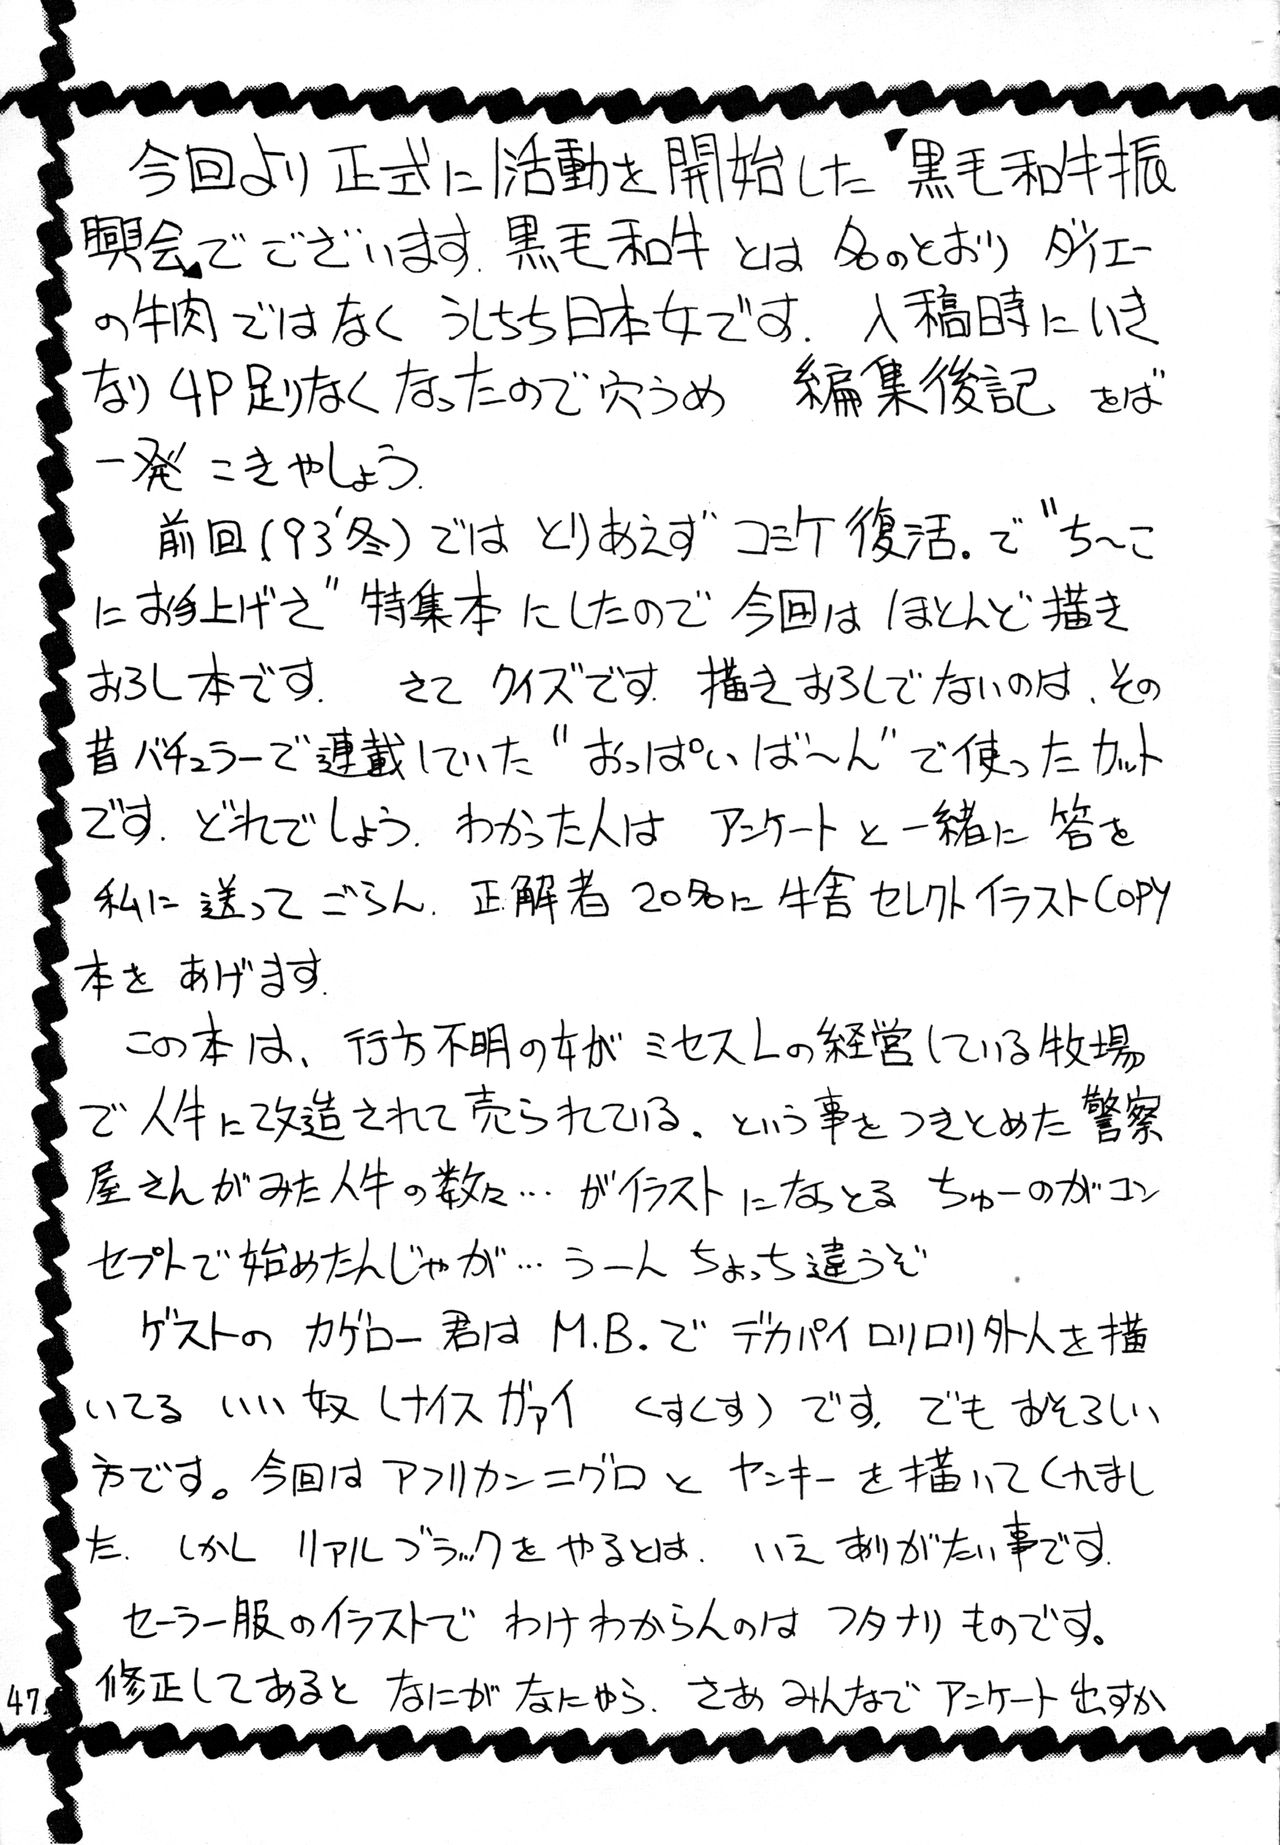 今回より正式に活動を開始した"黒毛和牛振
興会"でございます.黒毛和牛とは名のとおりダイエー
の牛肉ではなくうしちち日本女です.入稿時にいき
なり4P足りなくなったので穴うめ 編集後記をば
一発こきやしょう.
前回(93'冬)ではとりあえずコミケ復活。で"ち〜こ
にお手上げさ"特集本にしたので今回はほとんど描き
おろし本です. さてクイズです.描きおろしでないのは、その
昔バチュラーで連載していた"おっぱいば〜ん"で使ったカット
です.どれでしょう.わかった人はアンケートと一緒に答を
私に送ってごらん.正解者20名に牛舎セレクトイラストCOPY
本をあげます.
この本は、行方不明の女がミセスLの経営している牧場
で人牛に改造されて売られている、という事をつきとめた警察
屋さんがみた人牛の数々…がイラストになっとるちゅーのがコン
セプトで始めたんじゃが…うーんちょっち違うぞ
ゲストのカゲロー君はM.B.でデカパイロリロリ外人を描
いてるいい奴(ナイスガァイ くすくす)です.でもおそろしい
方です。今回はアフリカンニグロとヤンキーを描いてくれまし
た.しかしリアルブラックをやるとは.いえありがたい事です.
セーラー服のイラストでわけわからんのはフタナリものです。
修正してあるとなにがなにやら.さあみんなでアンケート出すか
47.